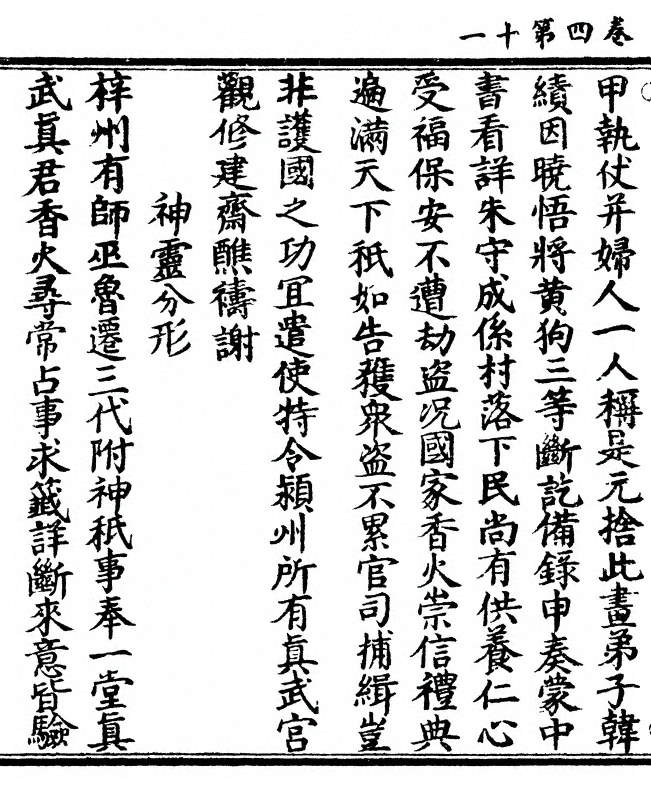 卷四第十一
甲執仗并婦人一人稱是元捨此畫弟子韓
績因曉悟將黄狗三等斷訖備錄申奏蒙中
書看詳朱守成係村落下民尚有供養仁心
受福保安不遭劫盜况國家香火崇信禮典
遍滿天下祇如告獲衆盜不累官司捕緝豈
非護國之功冝遣使特令潁州所有真武宫
觀修建齋醮禱謝
神靈分形
梓州有師巫魯遷三代附神秖事奉一堂真
武真君香火尋常占事求籤詳斷來意皆驗